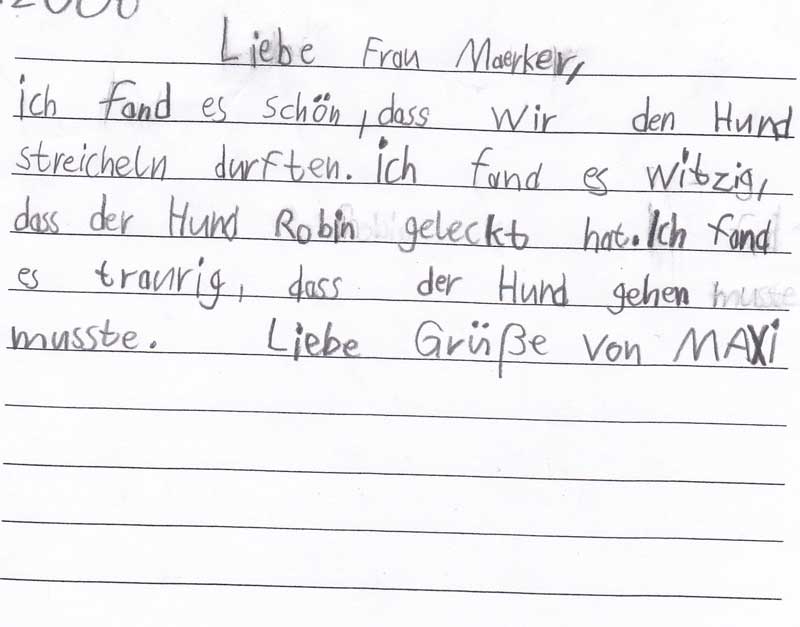 Liebe Frau Maerker,
ich fand es schön, dass wir den Hund
streicheln durften. ich fand es witzig,
dass der Hund Robin geleckt hat. Ich fand
es traurig, dass der Hund gehen
musste. Liebe Grüße von MAXi